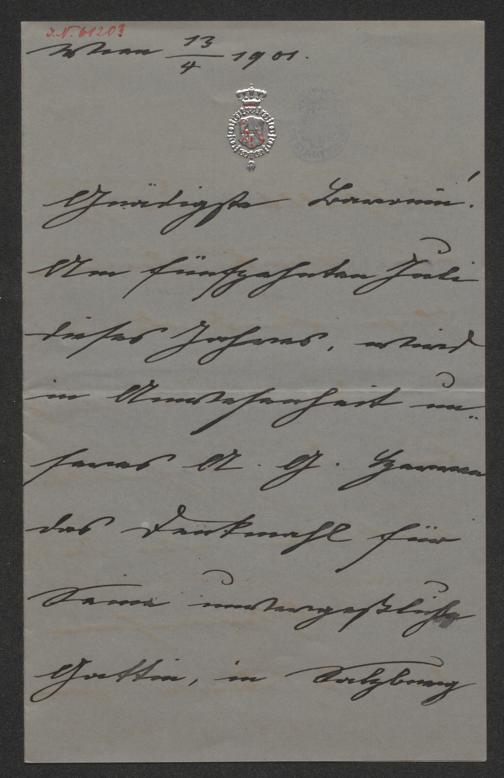 J.N. 61203
Wien 13/4 1901.
Gnädigste Baronin!
Am fünfzehnten Juli
dieses Jahres, wird
in Anwesenheit un-
seres A. G. Herren
das Denkmahl für
Seine unvergeßliche
Gattin, in Salzburg